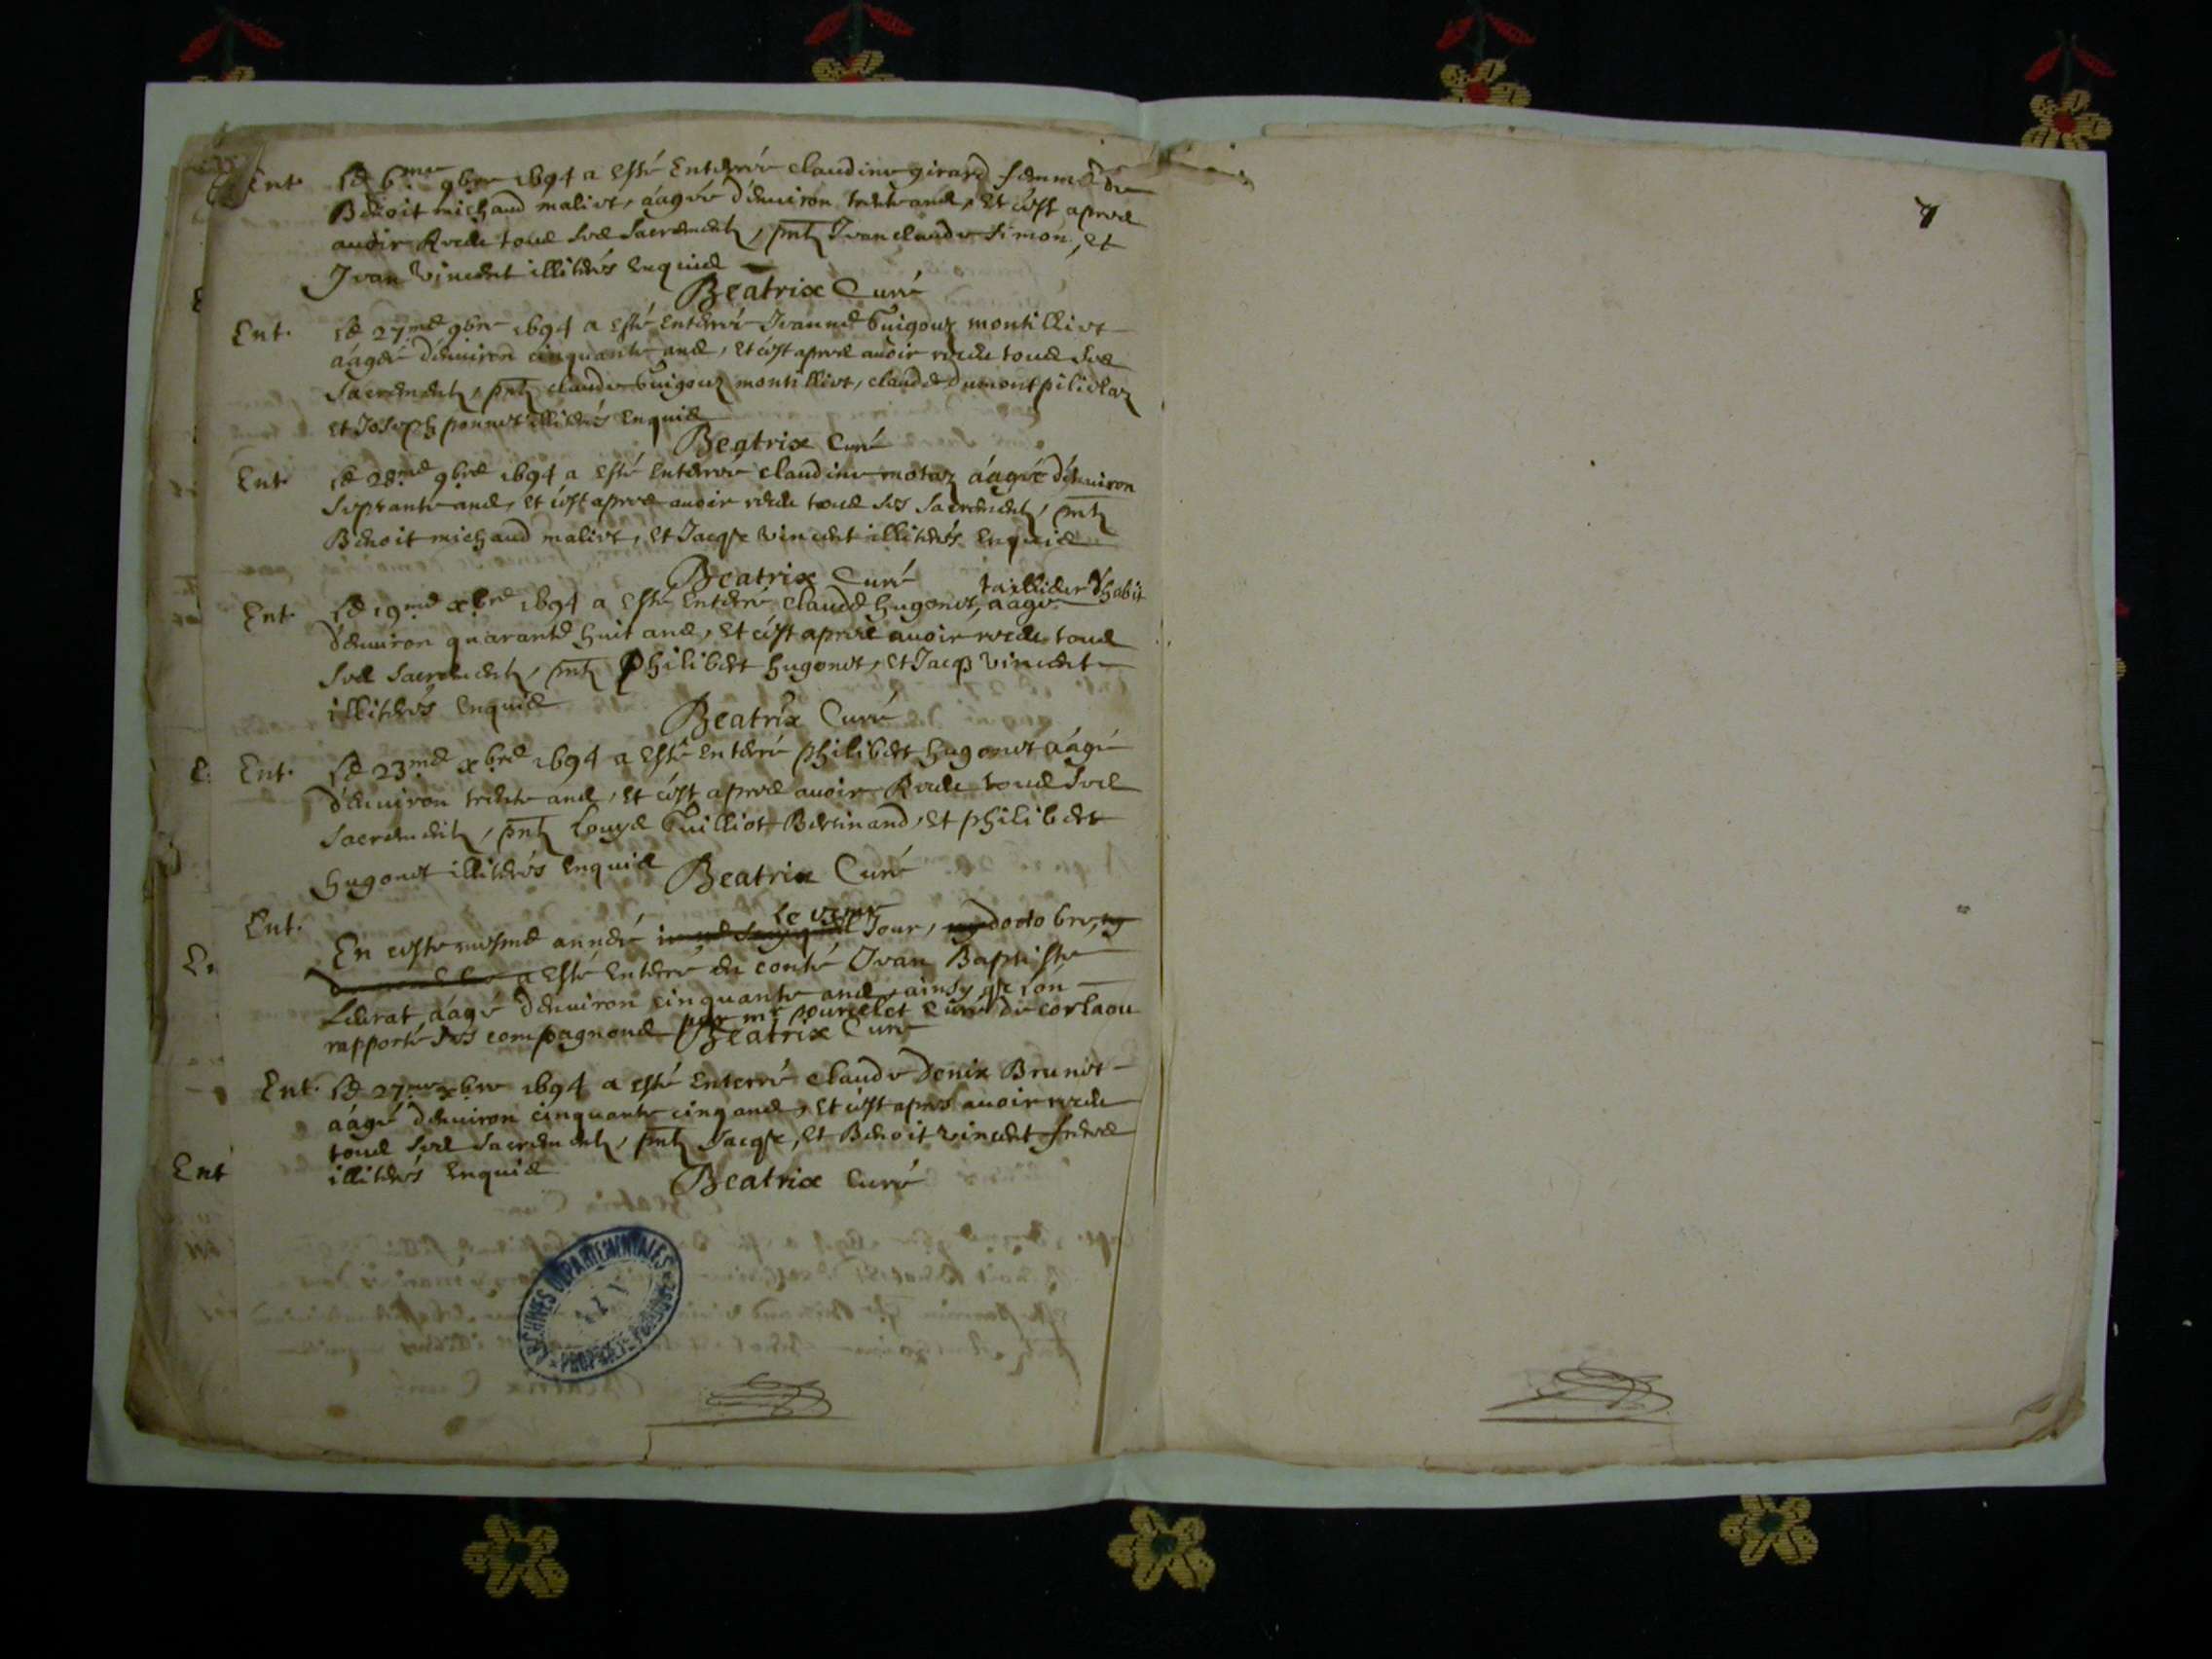 Ent. Le 6.me 9bre 1694 a esté enterrée claudine girard femme de
Benoit michaud maliet, áagée d'enuiron trente ans, et c'est apres
auoir Receu tous ses sacrements, pnts Jean claude simon, et
Jean Vincent illiterés enquis
Beatrix Curé
Ent. Le 27.me 9bre 1694 a esté enterré Jeanne Guigouz montilliet
áagée d'enuiron cinquante ans, et c'est apres auoir receu tous ses
sacrements, pnts claude Guigouz montilliet, claude dumont
et Joseph ponnet illiterés enquis
Beatrix Curé
Ent. Le 28.me 9bre 1694 a esté enterrée claudine motaz áagée d'enuiron
septante ans, et c'est apres auoir receu tous ses sacrements, pnts
Benoit michaud maliet, et Jacqse vincent illiterés enquis
Beatrix Curé
taillieur d'habit
Ent. Le 19.me xbre 1694 a esté enterré claude hugonet, aagé
d'enuiron quarante huit ans, et c'est apres auoir receu tous
ses sacrements, pnts Philibert hugonet, et Jacqs vincent
illiterés enquis
Beatrix Curé
E. Ent. Le 23.me xbre 1694 a esté enterré philibert hugonet áagé
d'enuiron trente ans, et c'est apres auoir Receu tous ses
sacrements, pnts Louys Guilliot Bertinand, et philibert
hugonet illiterés enquis Beatrix Curé
Ent.
E. En ceste mesme année Jour, doctobre,
a esté enterré en conté Jean Baptiste
áagé d'enuiron cinquante ans, ainsy qse lón
rapporté ses compagnons par mr pourcelet Curé de corlaou
Beatrix Curé
Ent. Le 27.me xbre 1694 a esté enterré claude Denix Brunet
áagé d'enuiron cinquante cinq ans, et c'est apres auoir receu
tous ses sacrements, pnts Jacqse, et Benoit vincent freres
Ent illiterés enquis
Beatrix Curé
ARCHIVES DÉPARTEMENTALES
AIN
PROPRIÉTÉ PUBLIQUE
7